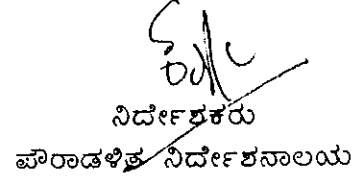 ನಿರ್ದೇಶಕರು
ಪೌರಾಡಳಿತ ನಿರ್ದೇಶನಾಲಯ